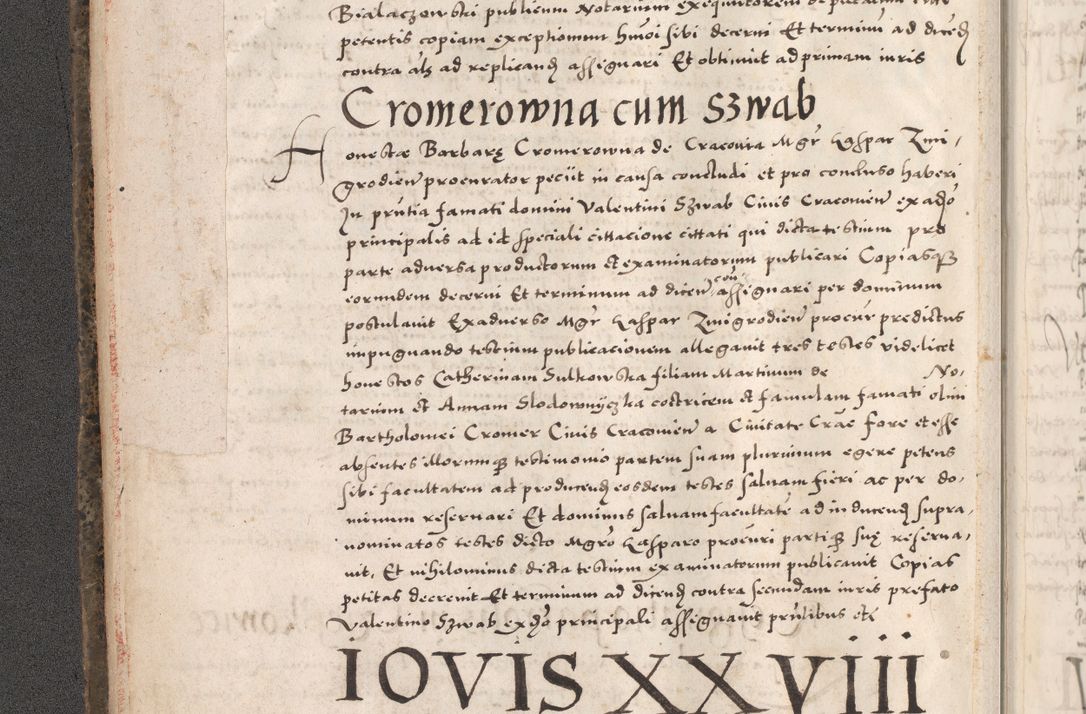 Bialaczowski publicum Notarium exequutorem
petentis copiam exceptionum hm̄oi sibi decerni Et terminū ad dicend
contra als ad replicand assignari Et obtinuit ad primam iuris
Cromerowna cum Szwab
Honestæ Barbarę Cromerowna de Cracovia Mgr̄ Gaspar Zmi-
grodień procurator peciit in causa concludi et pro concluso haberi
In pn̄tia famati domini Valentini Szwab Civis Cracovień ex adō
principalis ad id speciali cittacione cittati qui dicta testium pro
parte adversa productorum et examinatorum publicari Copiasq̄
eorundem decerni Et terminum ad diceń con assignari per dominum
postulavit Ex adverso Mgr̄ Gaspar Zmigrodień procur̄ predictus
impugnando testium publicacionem allegavit tres testes videlicet
honestos Catherinam Sulkowska filiam Martinum de No-
tarium et Annam Slodowniczka coctricem et famulam famati olim
Bartholomei Cromer Civis Cracovień a Civitate Crac̄ fore et esse
absentes illorumq̄ testimonio partem suam plurimum egere petens
sibi facultatem ad producend eosdem testes salvam fieri ac per do-
minum reservari Et dominus salvam facultatē ad inducend supra-
nominatos testes dicto Mgrō Gasparo procuri partiq̄ suę reserva-
vit, Et nihilominus dicta testium examinatorum publicavit Copias
petitas decrevit Et terminum ad dicend contra secundam iuris prefato
Valentino Szwab ex dō principali assignavit pn̄tibus etc
IOVIS XXVIII